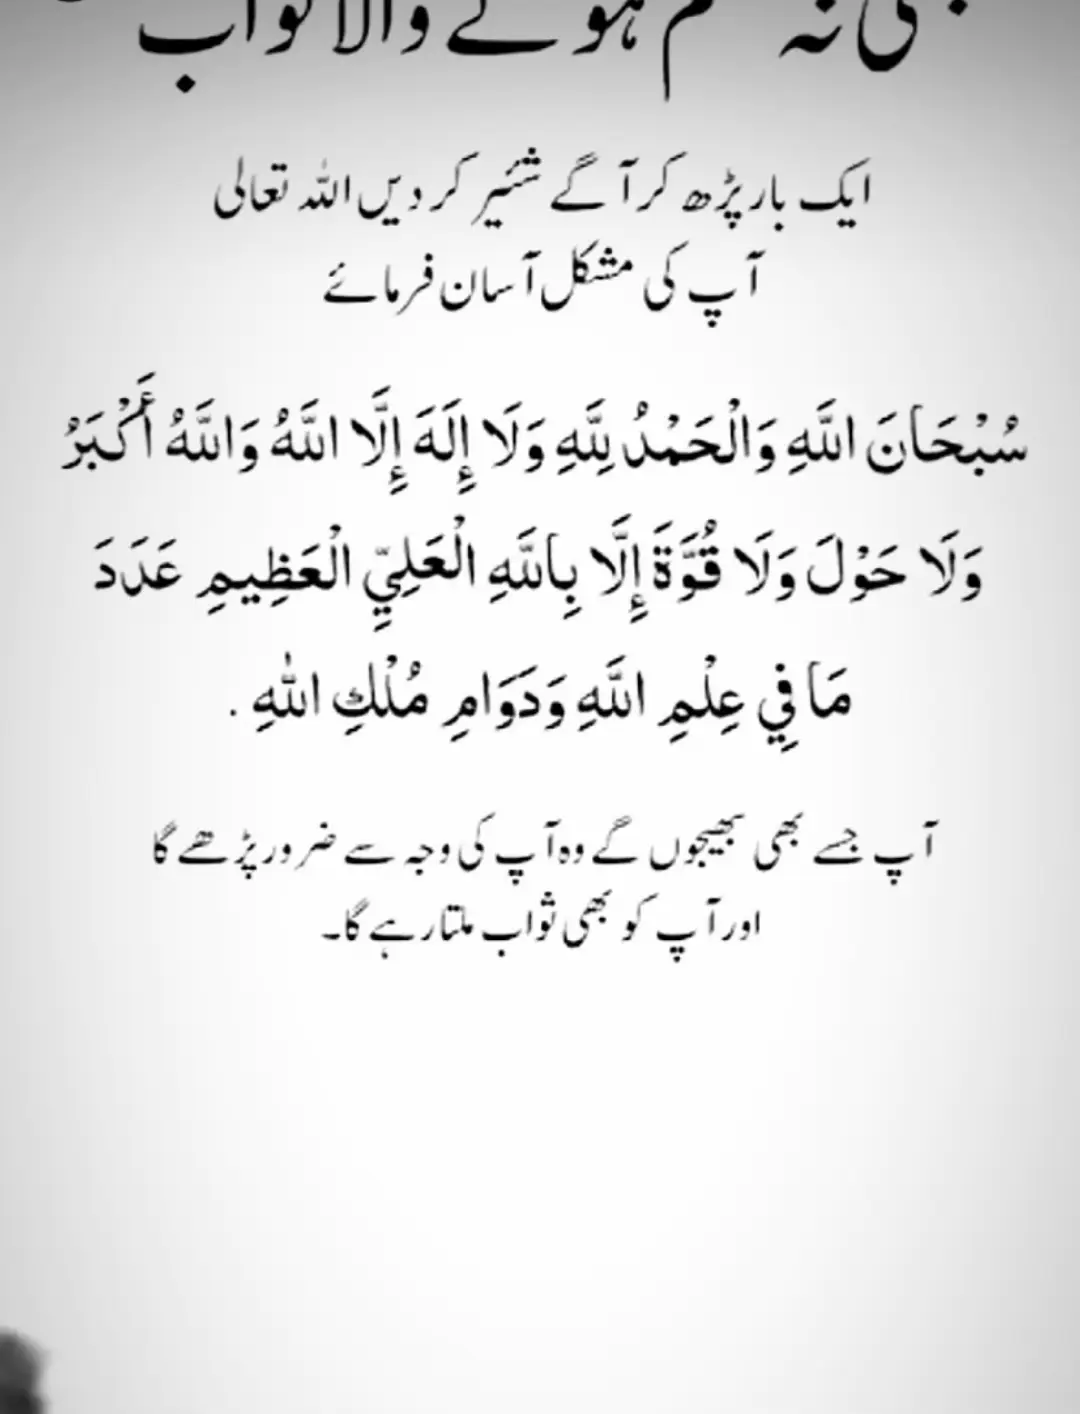 نہ ختم ہونے والا ثواب
ایک بار پڑھ کر آگے شئیر کر دیں اللہ تعالی
آپ کی مشکل آسان فرمائے
سُبْحَانَ اللَّهِ وَالْحَمْدُ لِلَّهِ وَلَا إِلَهَ إِلَّا اللَّهُ وَاللَّهُ أَكْبَرُ
وَلَا حَوْلَ وَلَا قُوَّةَ إِلَّا بِاللَّهِ الْعَلِيِّ الْعَظِيمِ عَدَدَ
مَا فِي عِلْمِ اللَّهِ وَدَوَامِ مُلْكِ اللهِ .
آپ جسے بھی بھیجوں گے وہ آپ کی وجہ سے ضرور پڑھے گا
اور آپ کو بھی ثواب ملتا رہے گا۔